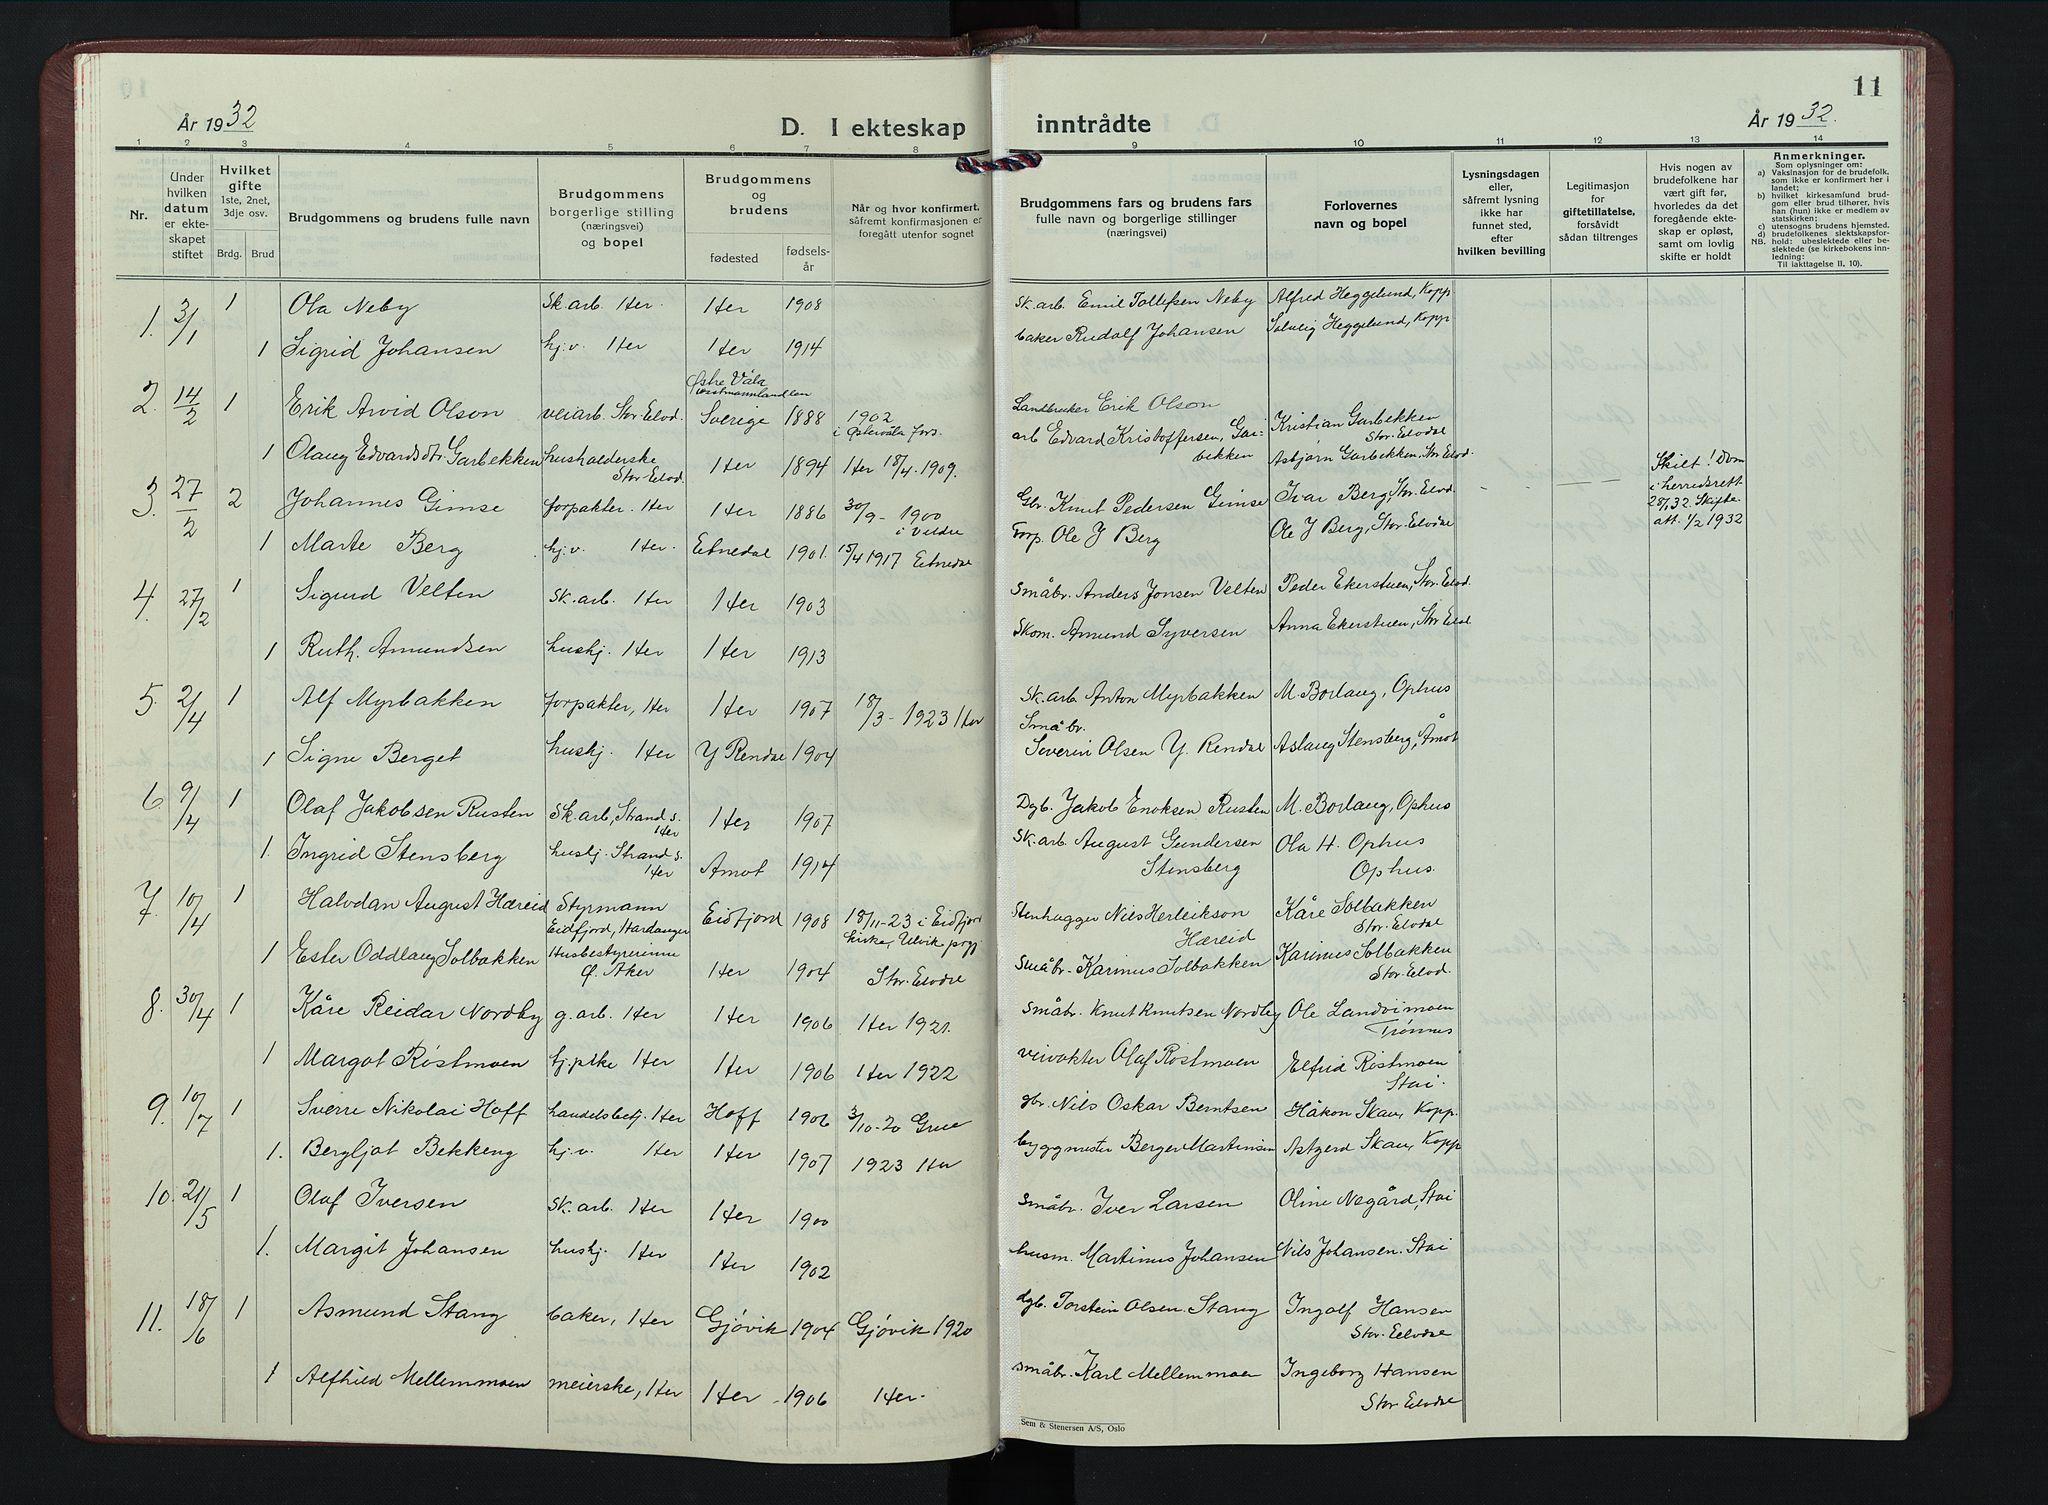 År 1932
D. I ekteskap
inntrådte
11
År 1932.
1 2 3 4 5 6 7 8 9 10 11 12 13 14
Nr.
Under hvilken datum er ekteskapet stiftet
Hvilket gifte 1ste, 2net, 3dje osv.
Brdg. Brud
Brudgommens og brudens fulle navn
Brudgommens borgerlige stilling (næringsvei) og bopel
Brudgommens og brudens
fødested
fødselsår
Når og hvor konfirmert, såfremt konfirmasjonen er foregått utenfor sognet
Brudgommens fars og brudens fars fulle navn og borgerlige stillinger (næringsvei)
Forlovernes navn og bopel
Lysningsdagen eller, såfremt lysning ikke har funnet sted, efter hvilken bevilling
Legitimasjon for giftetillatelse, forsåvidt sådan tiltrenges
Hvis nogen av brudefolkene har vært gift før, hvorledes da det foregående ekteskap er opløst, samt om lovlig skifte er holdt
Anmerkninger.
Som oplysninger om:
a) Vaksinasjon for de brudefolk, som ikke er konfirmert her i landet;
b) hvilket kirkesamfund brudgom eller brud tilhører, hvis han (hun) ikke er medlem av statskirken;
c) utensogns brudens hjemsted.
d) brudefolkenes slektskapsforhold: ubeslektede eller beslektede (se kirkebokens innledning:
NB.
Til iakttagelse II, 10).
1. 3/1 1 Ola Neby Sk.arb. Her. Her 1908 Sk.arb. Emil Tollefsen Neby Alfred Heggelund, Kopp
1 Sigrid Johansen hj.v. Her Her 1914 baker Rudolf Johansen Solveig Heggelund, Kopp
2. 14/2 1 Erik Arvid Olson veiarb. Stor-Elvd. Østre Våla Vestmannlandlen Sverige 1888 1902 i Østervåla fors. Landbruker Erik Olson Kristian Garbekken Stor-Elvdal
1 Olaug Edvardsdtr. Garbekken husholderske Stor-Elvd. Her 1894 Her 18/4-1909. arb Edvard Kristoffersen, Garbekken Asbjørn Garbekken, Stor-Elvd.
3. 27/2 2 Johannes Gimse forpakter. Her Her 1886 30/9-1900 i Veldre Gbr. Knut Pedersen Gimse Ivar Berg, Stor-Elvd. Skilt! Dom i herredsrett 28/1 32 Skifteatt. 1/2 1932
1 Marte Berg hj.v. Her. Etnedal 1901. 15/4 1917 Etnedal Forp. Ole J Berg Ole J Berg, Stor-Elvdal
4. 27/2 1 Sigurd Velten Sk.arb. Her Her 1903 Småbr. Anders Jonsen Velten Peder Ekerstuen, Stor-Elvd.
1 Ruth Amundsen hushj. Her Her 1913 Skom. Amund Syversen Anna Ekerstuen, Stor Elvdal
5. 2/4 1 Alf Myrbakken forpakter, Her Her 1907 18/3-1923 Her Sk.arb. Anton Myrbakken M. Borlaug, Ophus
1 Signe Berget hushj. Her Y Rendal 1904 Småbr. Severin Olsen Y. Rendal Aslaug Stensberg, Åmot
6 9/4 1 Olaf Jakobsen Rusten Sk.arb, Strand s. Her Her 1907 Dgb. Jakob Enoksen Rusten M. Borlaug, Ophus
1. Ingrid Stensberg hushj. Strand s. Her Amot 1914 Sk.arb. August Gundersen Stensberg Ola H. Ophus Ophus.
7. 10/4 1 Halvdan August Hæreid Styrmann Eidfjord, Hardanger Eidfjord 1908 18/11-23 i Eidfjord kirke, Ulvik prgj Stenhugger Nils Herleikson Hæreid Kåre Solbakken Stor-Elvdal
1 Ester Oddlaug Solbakken Husbestyrerinne Ø. Aker Her 1904 Stor-Elvdal Småbr. Karinus Solbakken Karinus Solbakken Stor-Elvd.
8. 30/4 1 Kåre Reidar Nordby g.arb. Her Her 1906 Her 1921. Småbr. Knut Knutsen Nordby Ole Landvimoen Trønnes
1 Margot Røstmoen hj.pike Her Her 1906 Her 1922 veivokter Olaf Røstmoen Elfrid Røstmoen Stai.
9. 10/7 1 Sverre Nikolai Hoff handelsbetj. Her Hoff 1906 3/10-20 Grue gbr. Nils Oskar Berntsen Håkon Skau, Kopp.
1. Bergljot Bekkeng hj.v. Her Her 1907 1923 Her byggmester Berger Martinsen Astgerd Skau, Kopp
10. 21/5 1 Olaf Iversen Sk.arb. Her Her 1900 Småbr. Iver Larsen Oline Negård, Stai
1. Margit Johansen hushj. Her Her 1902 husm. Martinus Johansen Nils Johansen. Stai
11. 18/6 1 Asmund Stang baker, Her Gjøvik 1904 Gjøvik 1920 dgb. Torstein Olsen Stang Ingolf Hansen Stor-Elvdal
1 Alfhild Mellemmoen meierske, Her Her 1906 Her. småbr. Karl Mellemmoen Ingeborg Hansen Stor Elvdal
Sem & Stenersen A/S, Oslo